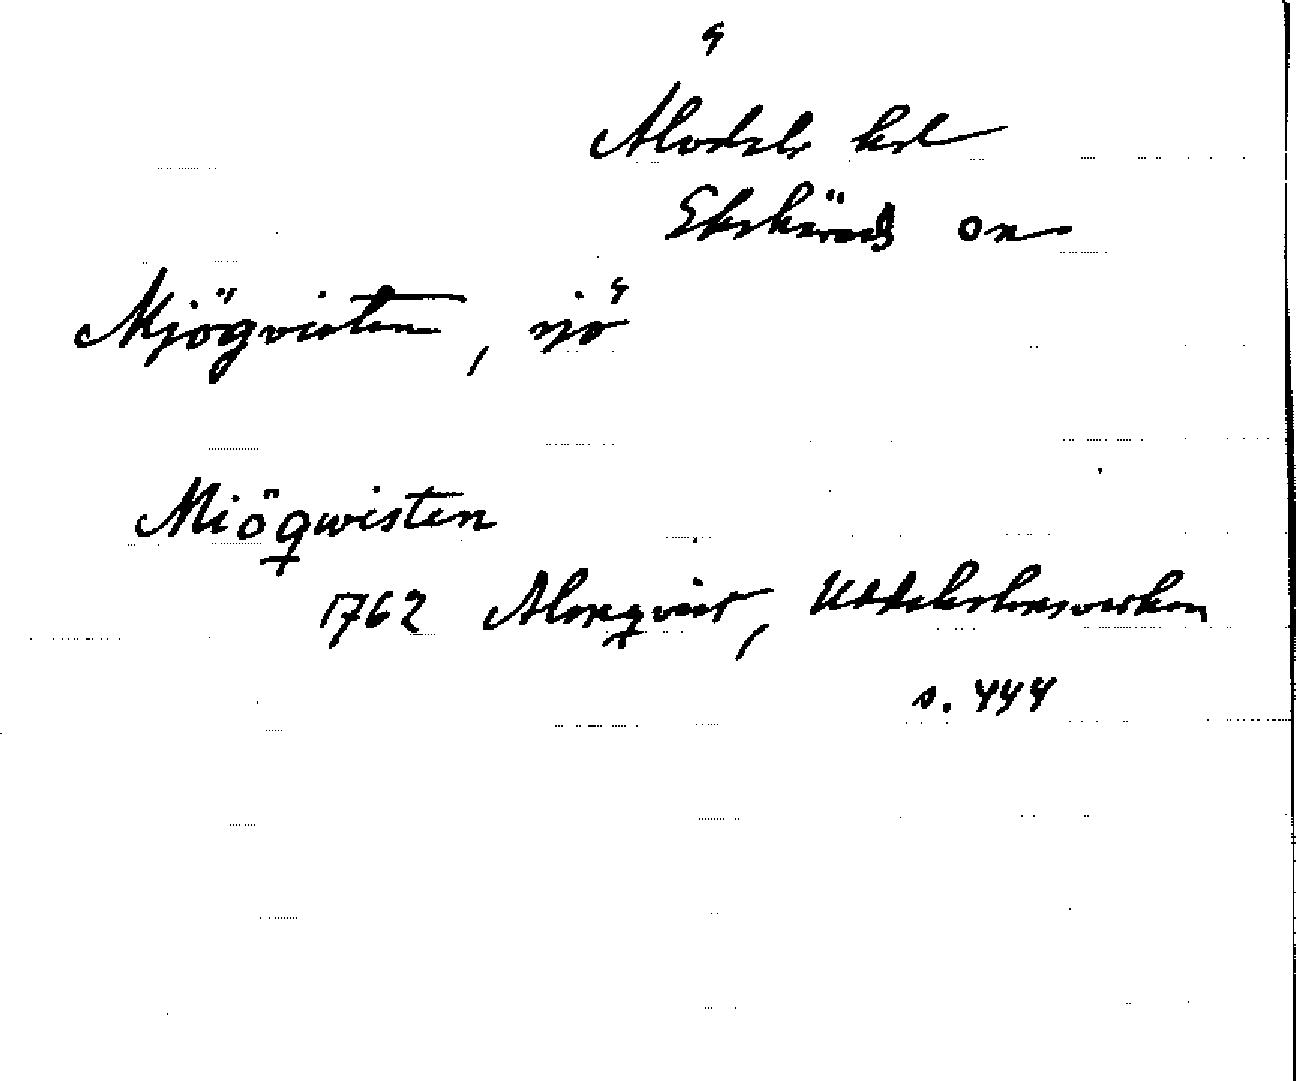 Älvdals hd
Ekshärads sn
Mjögvisten, sjö
Miöqwisten
1762 Almqvist, Uddeholmsverken
s. 444